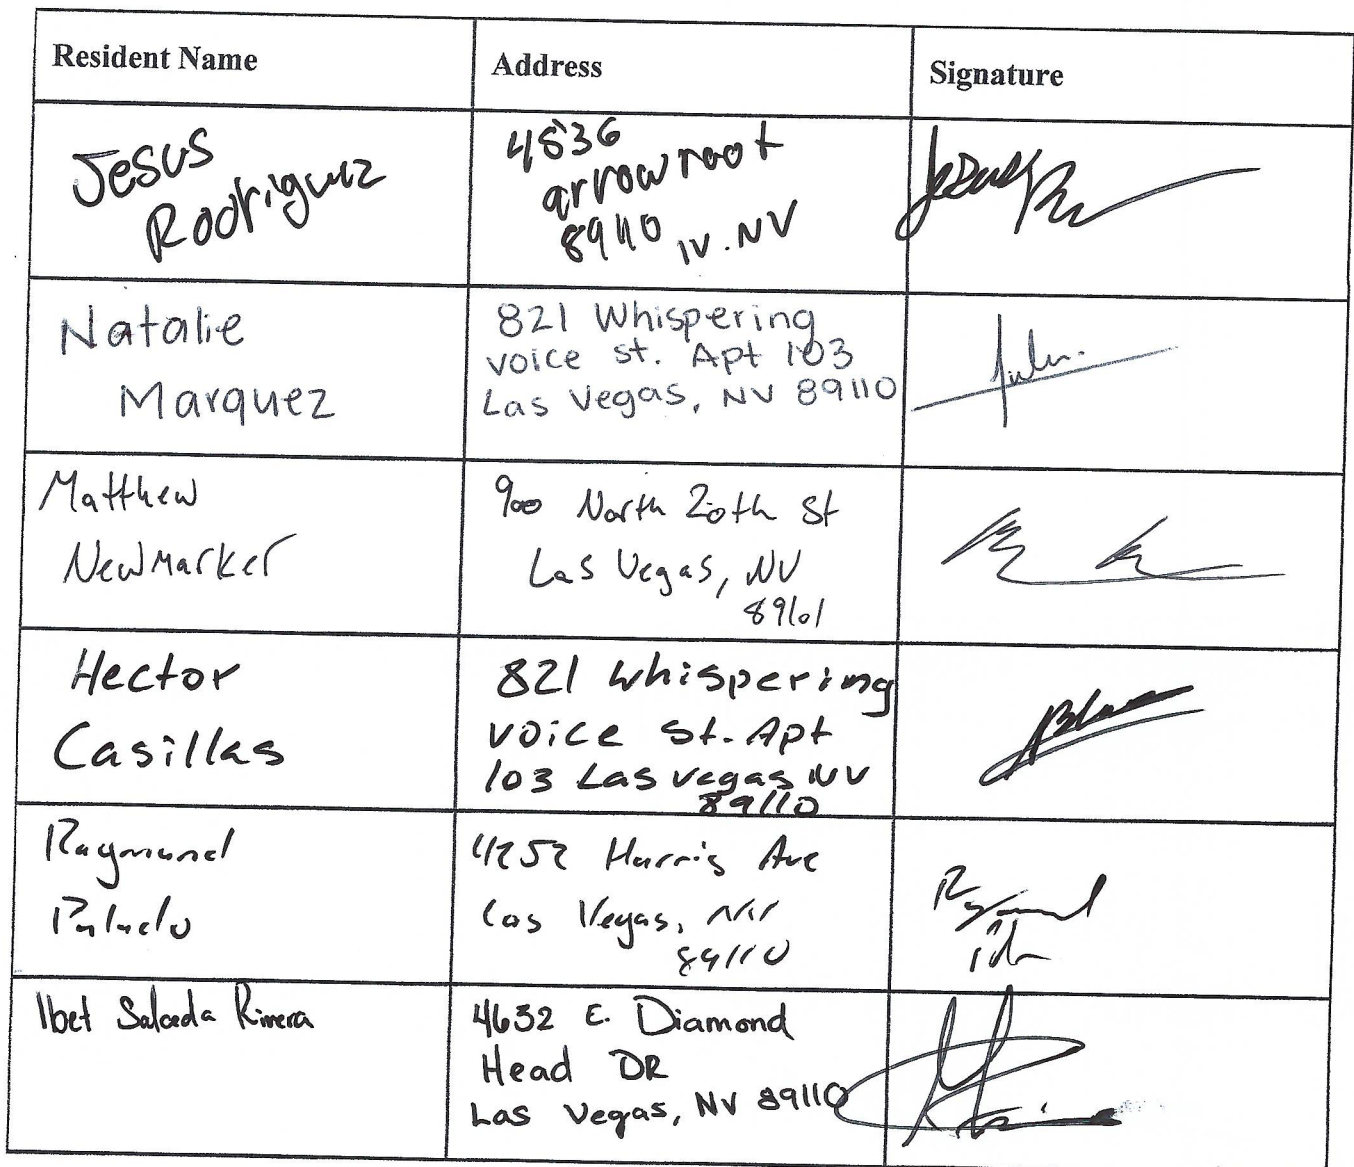 Resident Name
Address
Signature
Jesus
Rodriguez
4836
arrowroot
89110 lv. NV
Natalie
Marquez
821 Whispering
voice st. Apt 103
Las Vegas, NV 89110
Matthew
Newmarker
900 North 20th St
Las Vegas, NV
89101
Hector
Casillas
821 whispering
voice st. Apt
103 Las vegas NV
89110
Raymund
4252 Harris Ave
Las Vegas, NV
89110
Ibet Salceda Rivera
4632 E. Diamond
Head DR
Las Vegas, NV 89110